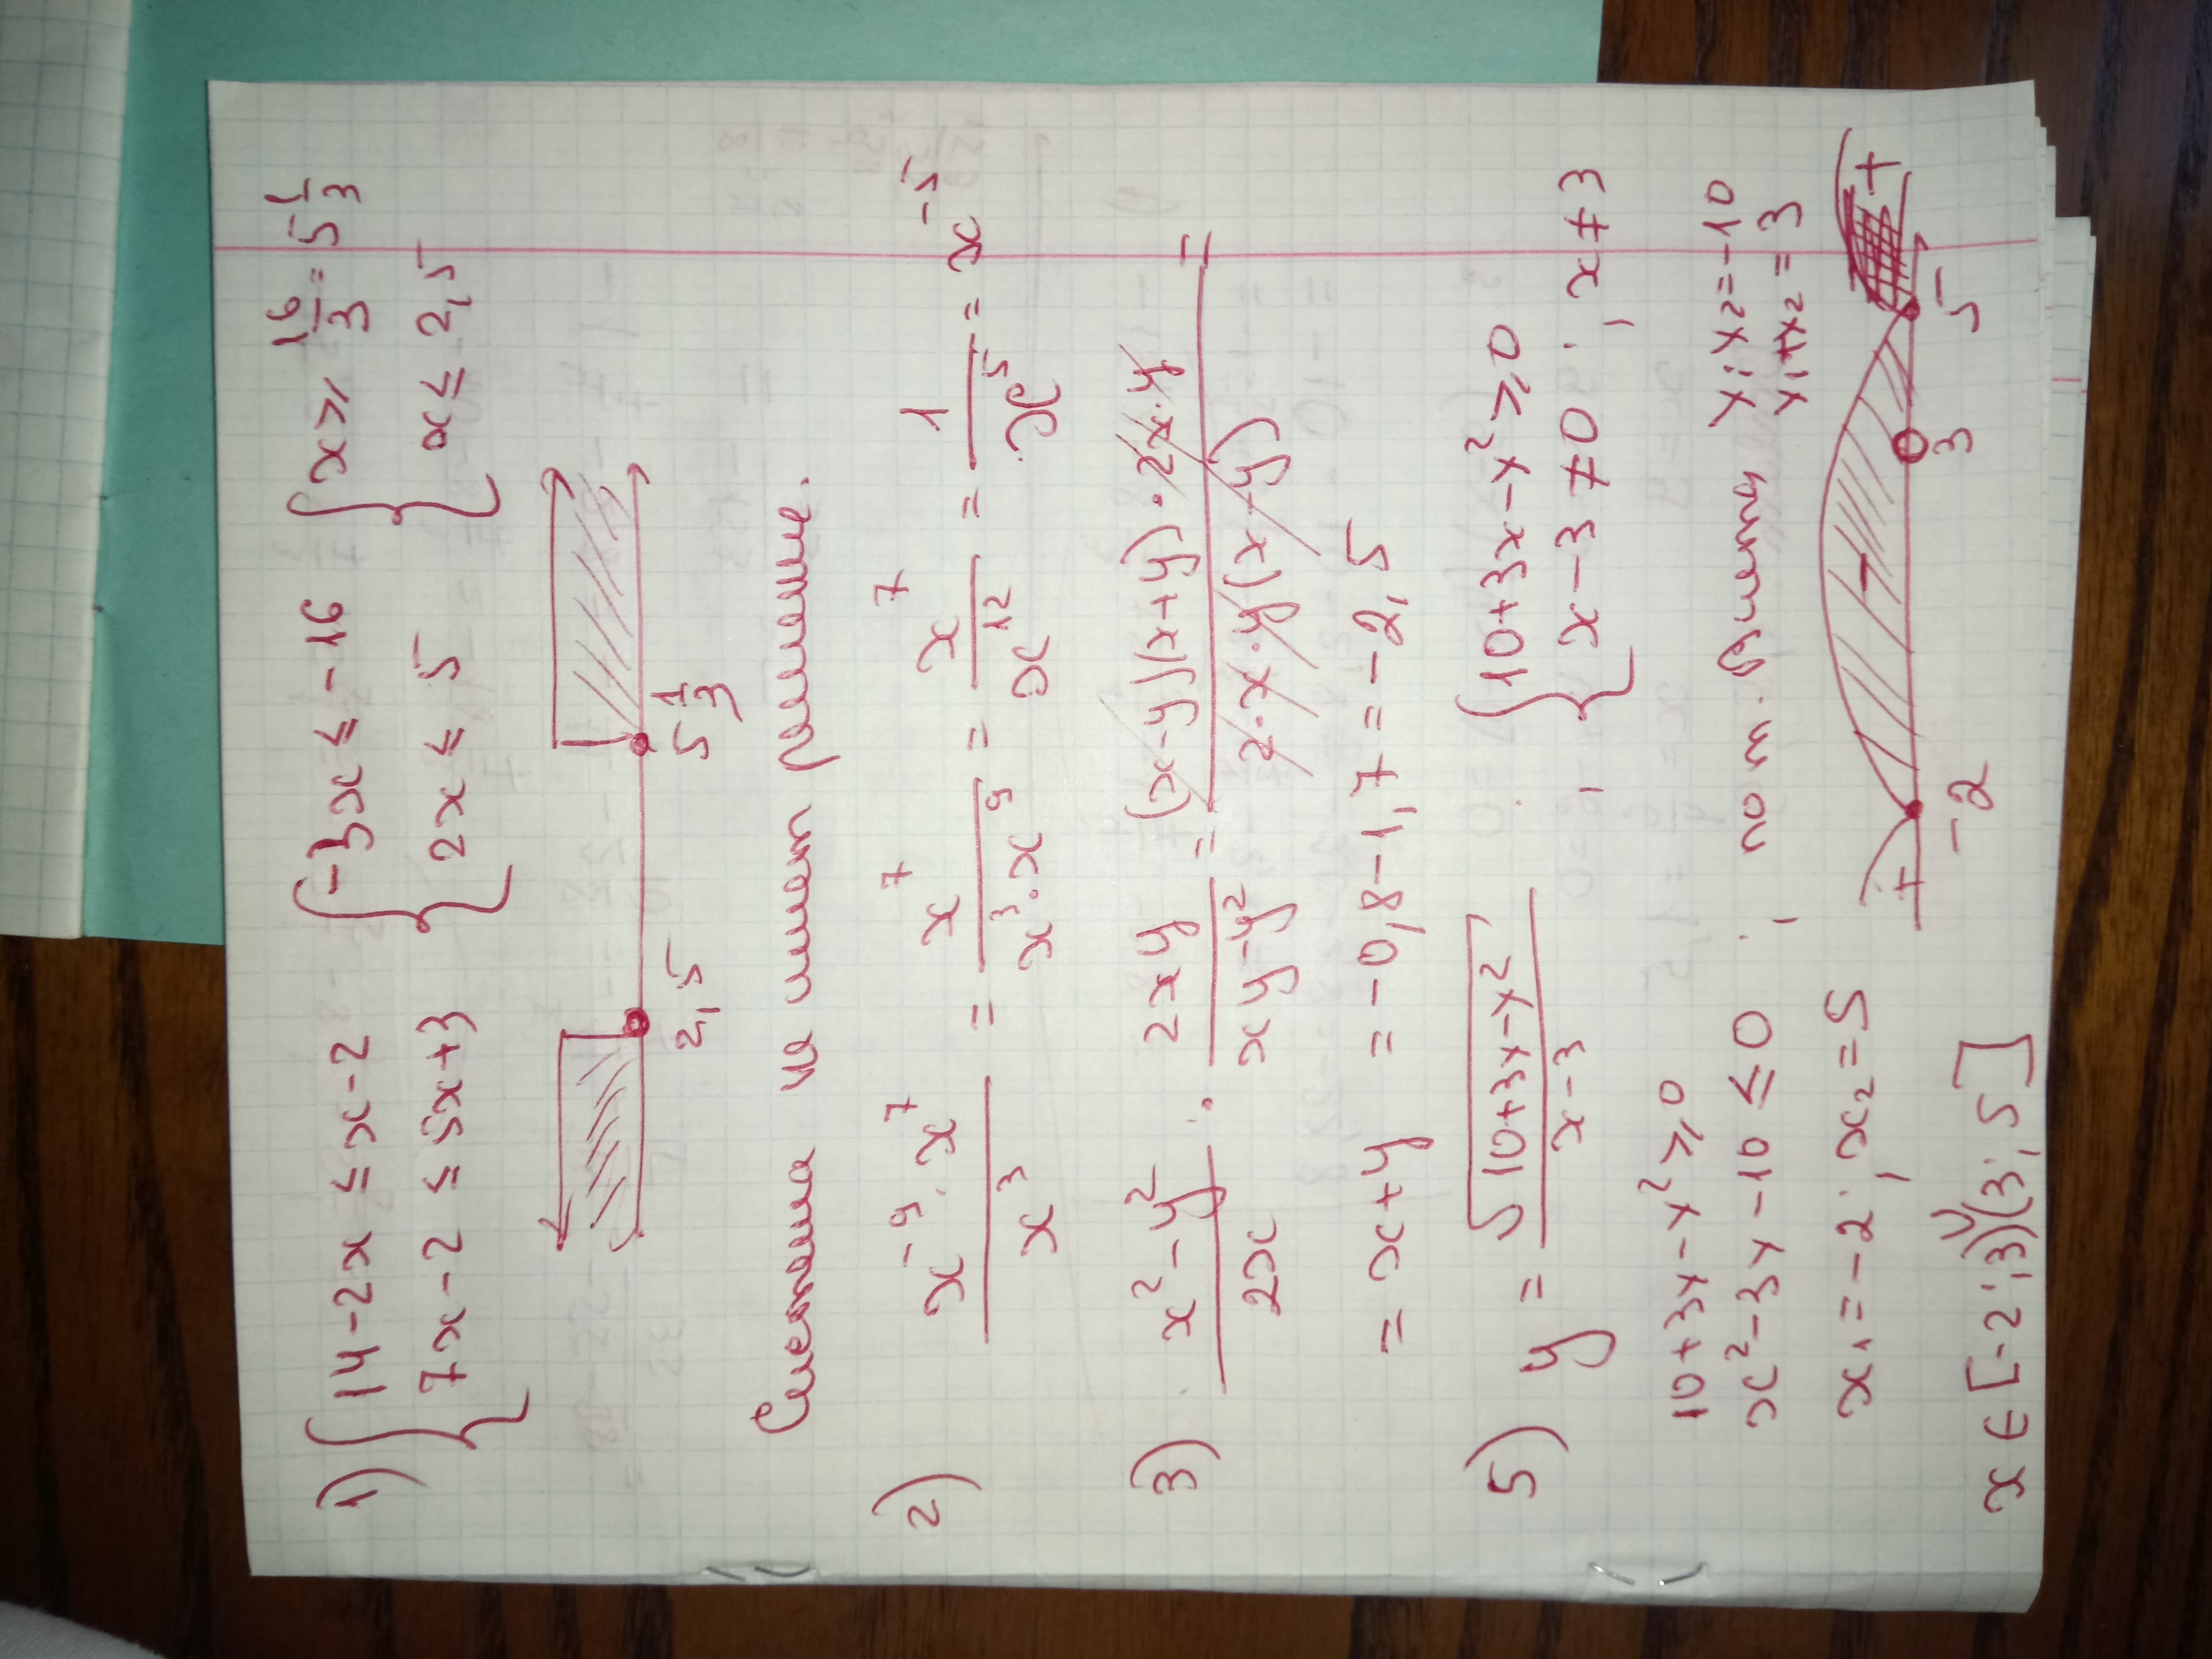 1) { 14-2x ≤ x-2 { -3x ≤ -16 { x ≥ 16/3 = 5 1/3
7x-2 ≤ 5x+3 2x ≤ 5 x ≤ 2,5
2,5 5 1/3
Система не имеет решение.
2) x⁻⁹·x⁷/x³ = x⁷/(x³·x⁹) = x⁷/x¹² = 1/x⁵ = x⁻⁵
3) (x²-y²)/2x : 2xy/(xy-y²) = (x-y)(x+y)·2x·y/(2·x·y(x-y)) =
= x+y = -0,8-1,7 = -2,5
5) y = √(10+3x-x²)/(x-3) , { 10+3x-x² ≥ 0
x-3 ≠ 0 ; x ≠ 3
10+3x-x² ≥ 0
x²-3x-10 ≤ 0 ; по т. Виета x₁·x₂=-10
x₁+x₂=3
x₁=-2 ; x₂=5
+ - +
-2 3 5
x ∈ [-2;3)∪(3;5]